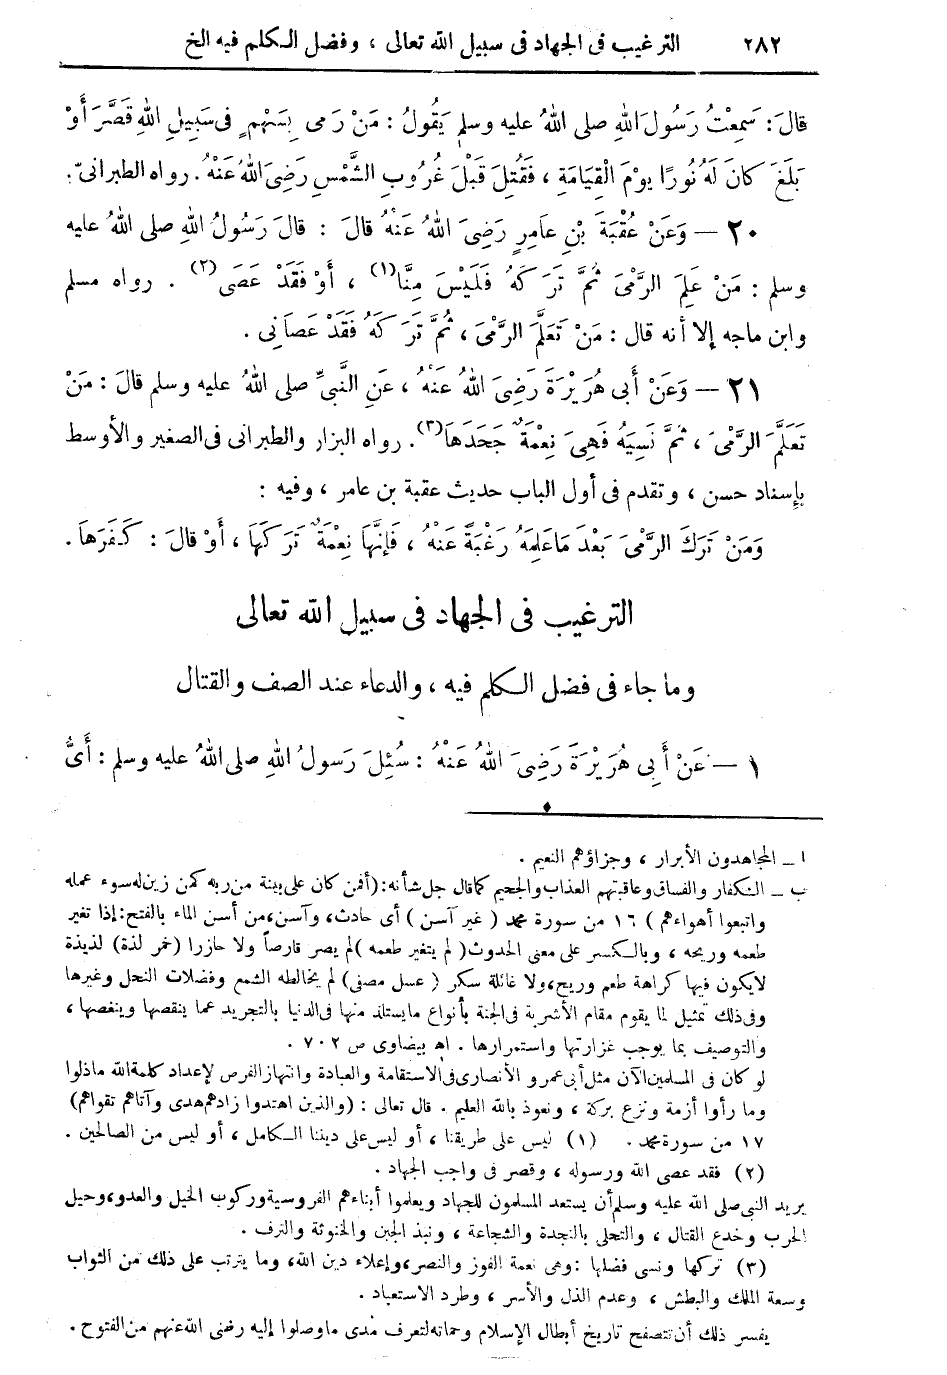 ٢٨٢ الترغيب فى الجهاد فى سبيل الله تعالى ، وفضل الكلم فيه الخ
قَالَ : سَمِعْتُ رَسُولَ اللهِ صلى اللهُ عليه وسلم يَقُولُ : مَنْ رَمى بِسَهْمٍ فى سَبِيلِ اللهِ قَصَّرَ أَوْ
بَلَغَ كَانَ لَهُ نُورًا يَوْمَ الْقِيَامَةِ ، فَقُتِلَ قَبْلَ غُرُوبِ الشَّمْسِ رَضِىَ اللهُ عَنْهُ . رواه الطبرانىّ .
٢٠ — وَعَنْ عُقْبَةَ بْنِ عَامِرٍ رَضِىَ اللهُ عَنْهُ قَالَ : قَالَ رَسُولُ اللهِ صلى اللهُ عليه
وسلم : مَنْ عَلِمَ الرَّمْىَ ثُمَّ تَرَكَهُ فَلَيْسَ مِنَّا (١) ، أَوْ فَقَدْ عَصَى (٢) . رواه مسلم
وابن ماجه إلا أنه قال : مَنْ تَعَلَّمَ الرَّمْىَ ، ثُمَّ تَرَكَهُ فَقَدْ عَصَانِى .
٢١ — وَعَنْ أَبى هُرَيْرَةَ رَضِىَ اللهُ عَنْهُ ، عَنِ النَّبِىِّ صلى اللهُ عليه وسلم قَالَ : مَنْ
تَعَلَّمَ الرَّمْىَ ، ثُمَّ نَسِيَهُ فَهِىَ نِعْمَةٌ جَحَدَهَا (٣) . رواه البزار والطبرانى فى الصغير والأوسط
بإسناد حسن ، وتقدم فى أول الباب حديث عقبة بن عامر ، وفيه :
وَمَنْ تَرَكَ الرَّمْىَ بَعْدَ مَاعَلِمَهُ رَغْبَةً عَنْهُ ، فَإِنَّهَا نِعْمَةٌ تَرَكَهَا ، أَوْ قَالَ : كَفَرَهَا .
الترغيب فى الجهاد فى سبيل الله تعالى
وما جاء فى فضل الكلم فيه ، والدعاء عند الصف والقتال
١ — عَنْ أَبِى هُرَيْرَةَ رَضِىَ اللهُ عَنْهُ : سُئِلَ رَسُولُ اللهِ صلى اللهُ عليه وسلم : أَىُّ
ا — المجاهدون الأبرار ، وجزاؤهم النعيم .
ب — الكفار والفساق وعاقبتهم العذاب والجحيم كما قال جل شأنه : (أفمن كان على بينة من ربه كمن زين له سوء عمله
واتبعوا أهواءهم ) ١٦ من سورة محمد ( غير آسن ) أى حادث، وآسن، من أسن الماء بالفتح : إذا تغير
طعمه وريحه ، وبالكسر على معنى الحدوث ( لم يتغير طعمه ) لم يصر قارصاً ولا حازرا (خمر لذة) لذيذة
لايكون فيها كراهة طعم وريح، ولا غائلة سكر ( عسل مصفى) لم يخالطه الشمع وفضلات النحل وغيرها
وفى ذلك تمثيل لما يقوم مقام الأشربة فى الجنة بأنواع مايستلذ منها فى الدنيا بالتجريد عما ينقصها وينغصها ،
والتوصيف بما يوجب غزارتها واستمرارها . اهـ بيضاوى ص ٧٠٢ .
لو كان فى المسلمين الآن مثل أبى عمرو الأنصارى فى الاستقامة والعبادة وانتهاز الفرص لإعداد كلمة الله ماذلوا
وما رأوا أزمة ونزع بركة ، ونعوذ بالله العليم . قال تعالى : (والذين اهتدوا زادهم هدى وآتاهم تقواهم)
١٧ من سورة محمد . (١) ليس على طريقنا ، أو ليس على ديننا الكامل ، أو ليس من الصالحين .
(٢) فقد عصى الله ورسوله ، وقصر فى واجب الجهاد .
يريد النبى صلى الله عليه وسلم أن يستعد المسلمون للجهاد ويعلموا أبناءهم الفروسية وركوب الخيل والعدو، وحيل
الحرب وخدع القتال ، والتحلى بالنجدة والشجاعة ، ونبذ الجبن والخنوثة والترف .
(٣) تركها ونسى فضلها : وهى نعمة الفوز والنصر، وإعلاء دين الله، وما يترتب على ذلك من الثواب
وسعة الملك والبطش ، وعدم الذل والأسر ، وطرد الاستعباد .
يفسر ذلك أن تتصفح تاريخ أبطال الإسلام وحماته لتعرف مدى ماوصلوا إليه رضى الله عنهم من الفتوح .